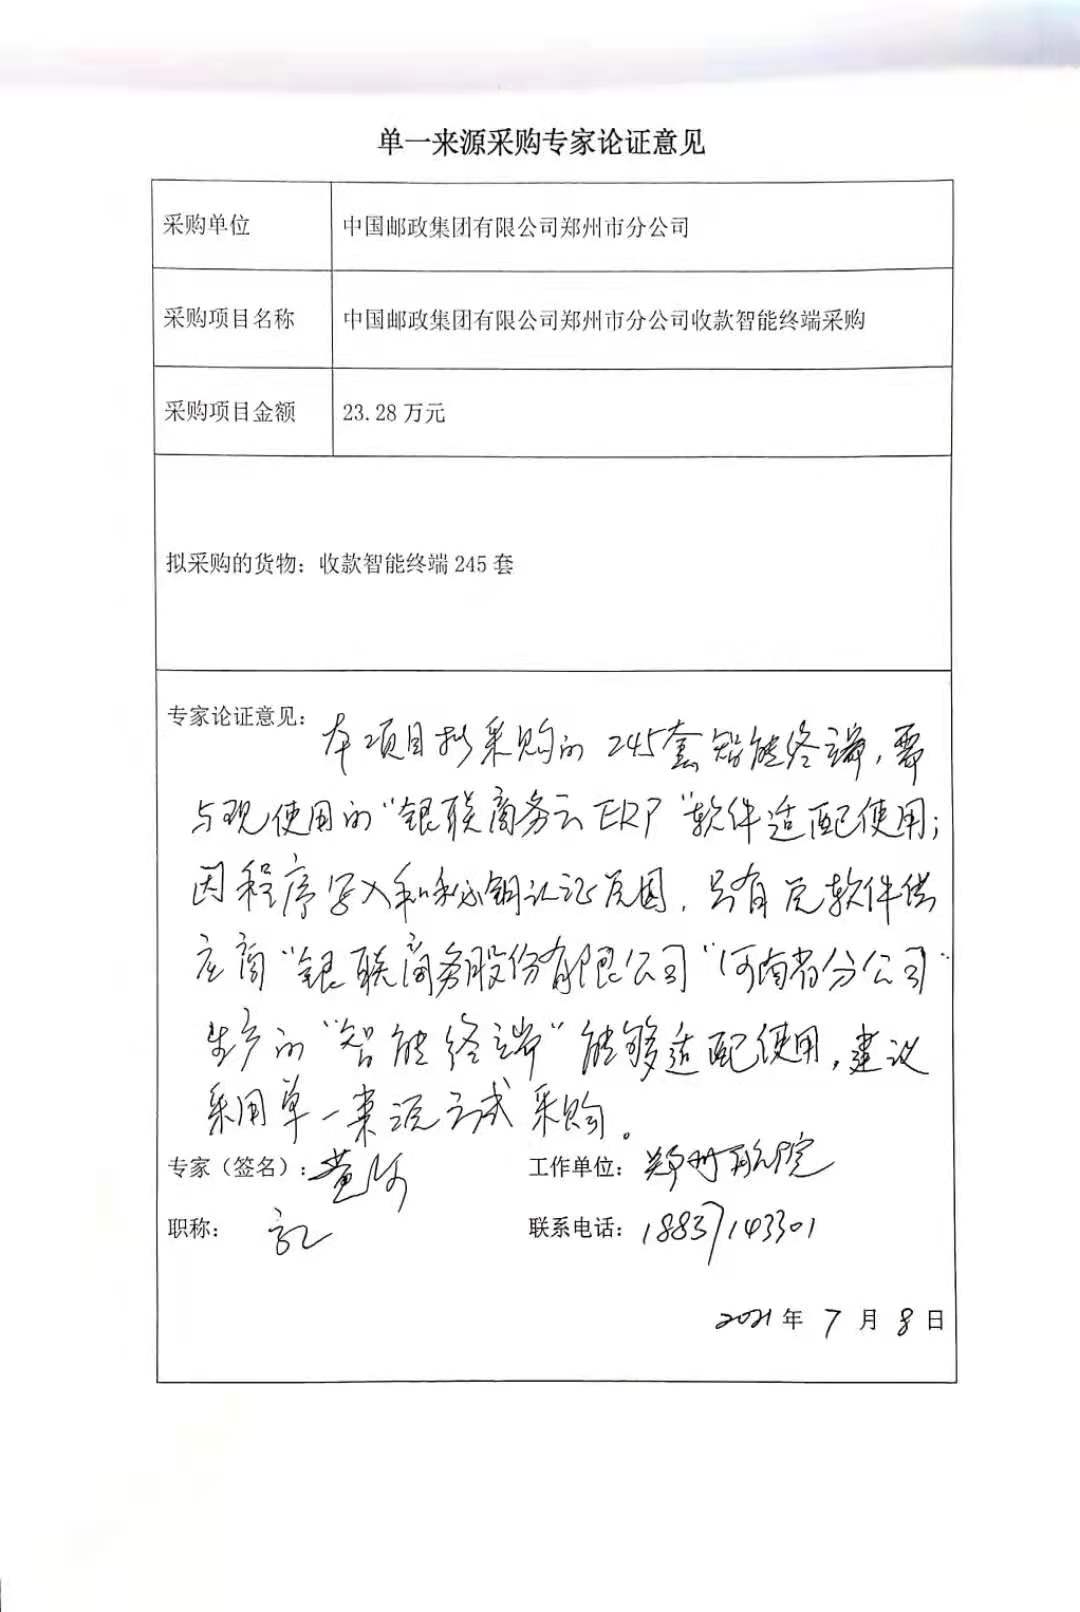 单一来源采购专家论证意见
采购单位 中国邮政集团有限公司郑州市分公司
采购项目名称 中国邮政集团有限公司郑州市分公司收款智能终端采购
采购项目金额 23.28 万元
拟采购的货物：收款智能终端 245 套
专家论证意见：
本项目拟采购的245套智能终端，需
与现使用的"银联商务云ERP"软件适配使用；
因程序写入和秘钥认证原因，只有原软件供
应商"银联商务股份有限公司"河南省分公司"
生产的"智能终端"能够适配使用，建议
采用单一来源方式采购。
专家（签名）：黄河 工作单位：郑州航院
职称： 联系电话：18837143301
2021年 7 月 8 日